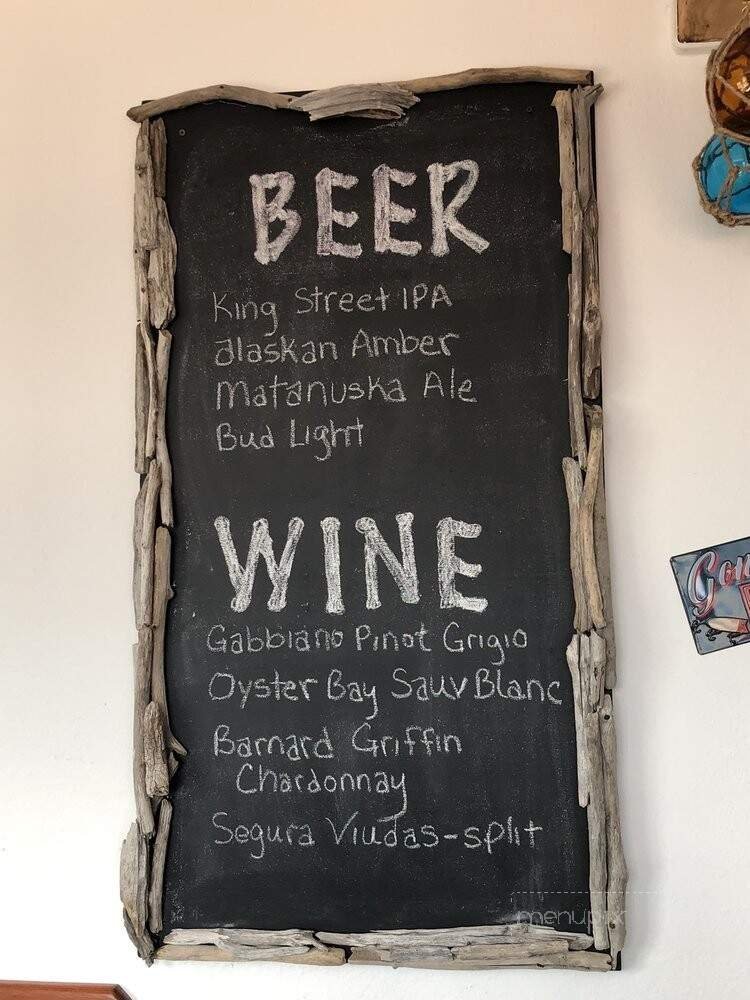 BEER
King Street IPA
alaskan Amber
Matanuska Ale
Bud Light
WINE
Gabbiano Pinot Grigio
Oyster Bay Sauv Blanc
Barnard Griffin
Chardonnay
Segura Viudas-split